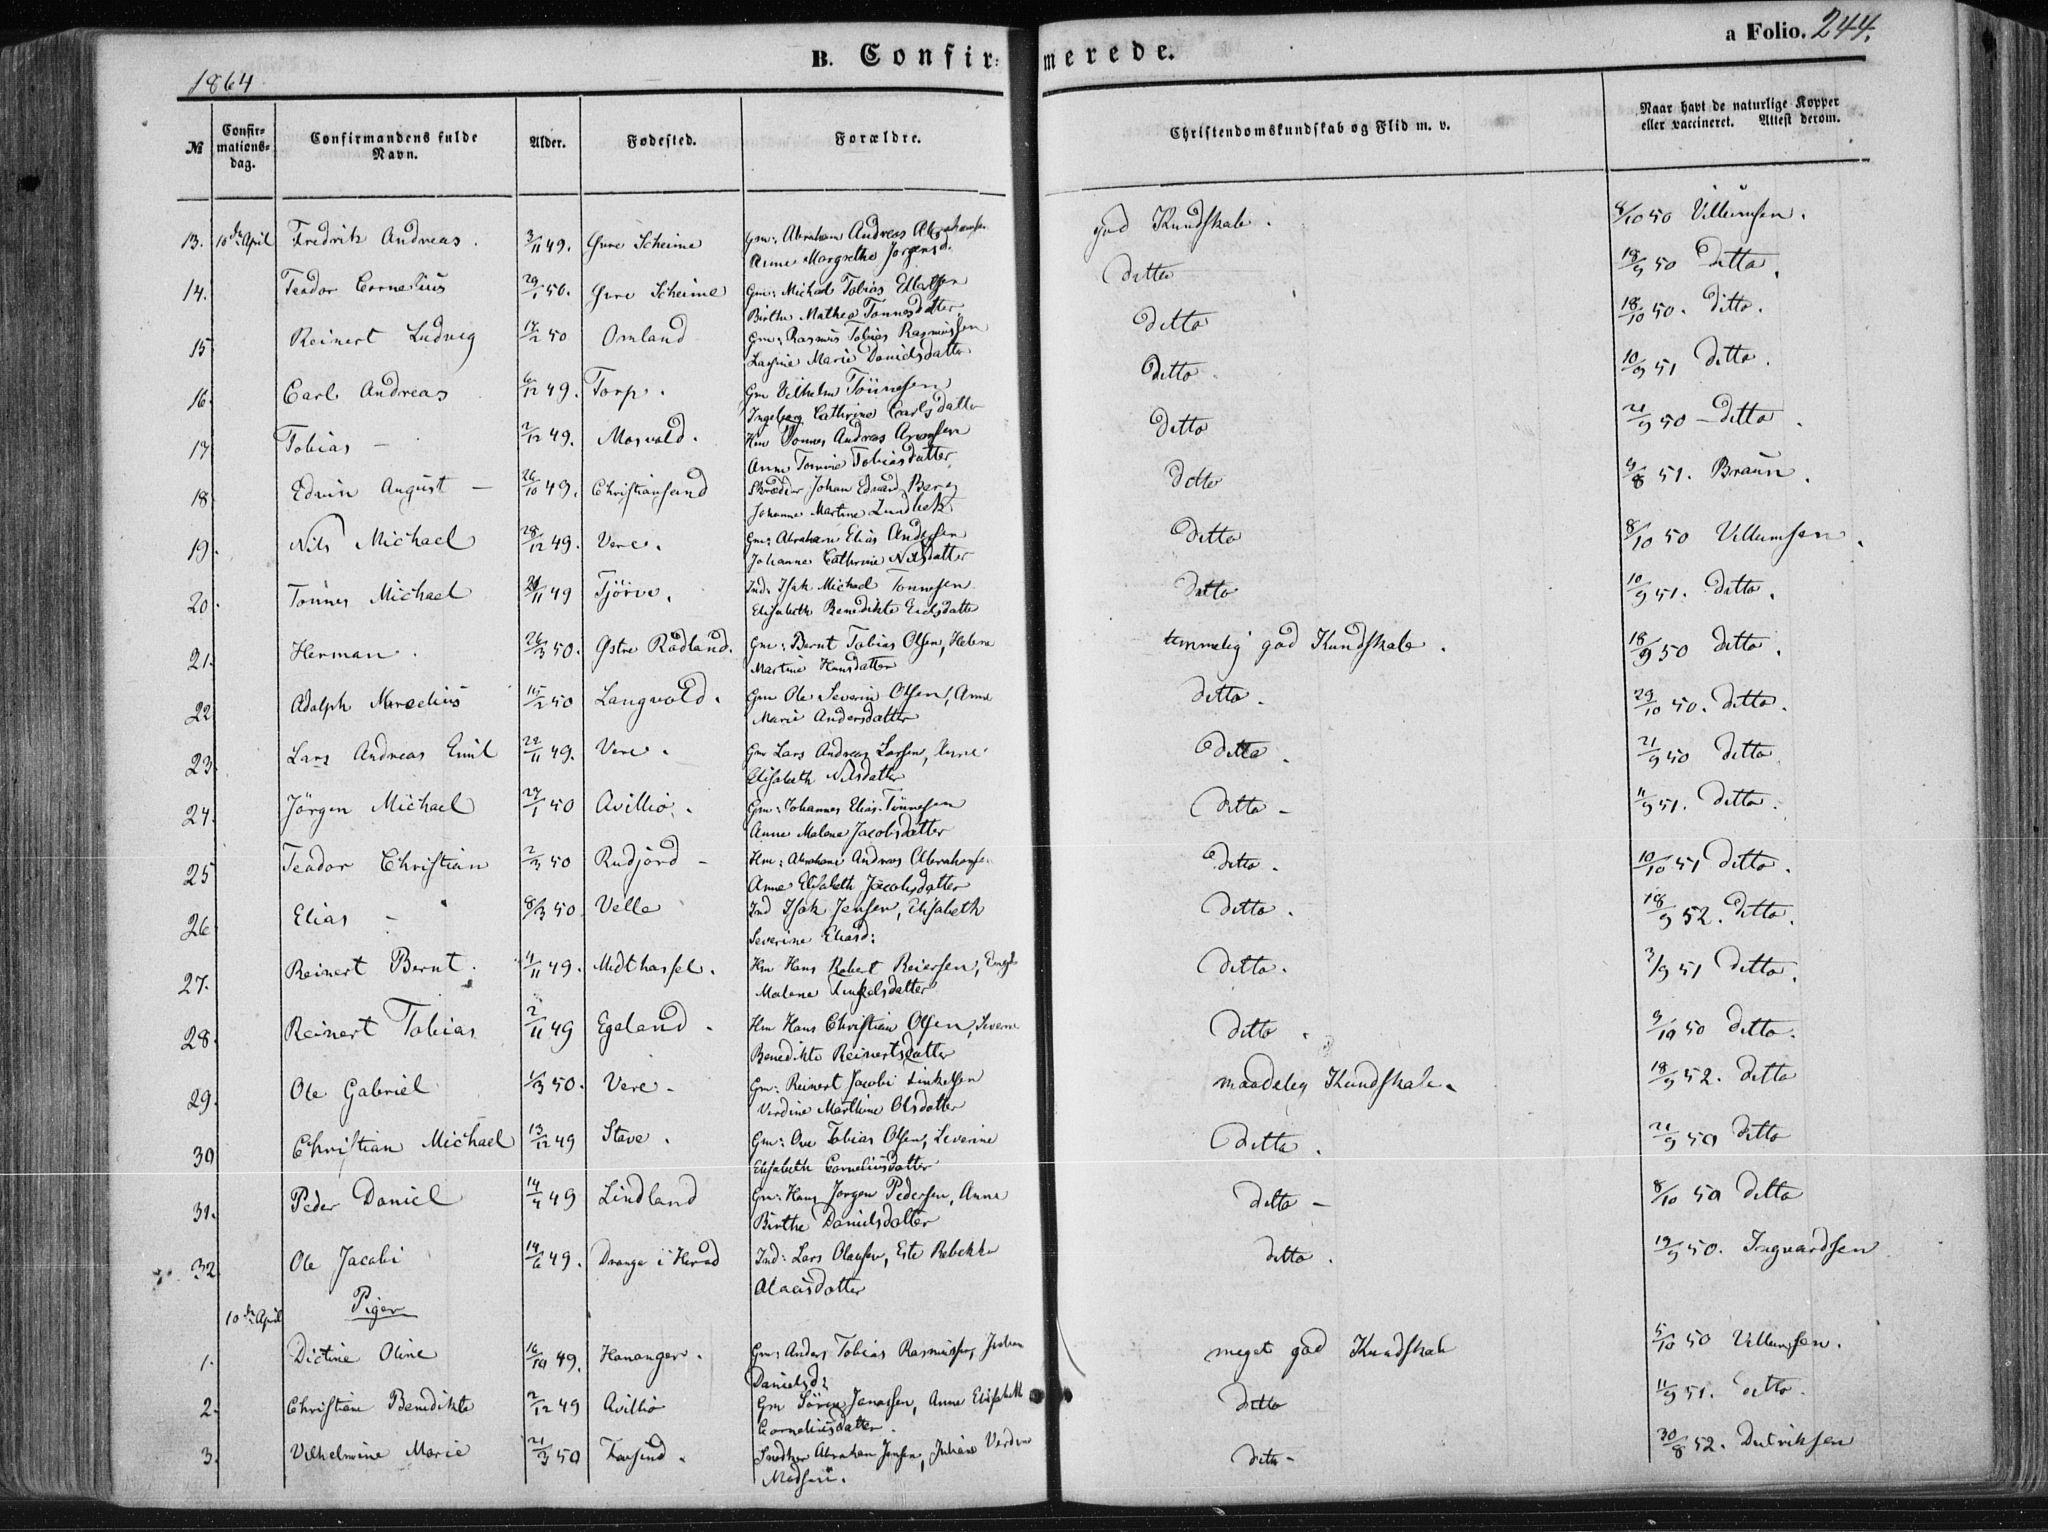 B. Confir- merede.
a Folio. 244.
1864
№ Confir-mations-dag. Confirmandens fulde Navn. Alder. Fødested. Forældre. Christendomskundskab og Flid m. v. Naar havt de naturlige Kopper eller vaccineret. Attest derom.
13. 10de April Fredrik Andreas. 3/11 49. Øvre Scheime Gm: Abraham Andreas Abrahamsen god Kundskab. 8/10 50 Villumsen.
Anne Margrethe Jörgensd.
14. Teodor Cornelius 29/1 50. Øvre Scheime Gm: Michael Tobias ditto 18/9 50 Ditto.
Birthe Mathea Tonnesdatter
15 Reinert Ludvig 17/2 50 Omland Gm: Rasmus Tobias Rasmussen ditto 18/10 50. ditto.
Marie Danielsdatter
16. Carl Andreas 6/12 49. Torp. Gm Vilhelm Tönnesen ditto 10/9 51 ditto.
Ingeborg Cathrine Carlsdatter
17 Tobias - 2/12 49. Mosvold. Hm Tonnes Andreas ditto 21/9 50 - ditto.
Anne Tomine Tobiasdatter
18 Edvin August - 26/10 49. Christiansand Skrædder Johan Edvard Berg ditto 9/8 51. Braun.
Johanne Martine Lundbek
19. Nils Michael 28/12 49. Vere. Gm: Abraham Elias Andersen ditto 8/10 50 Villumsen.
Johanne Cathrine Nilsdatter
20. Tönnes Michael 21/11 49 Tjörve. Ind: Isak Michael Tonnesen ditto 10/9 51. ditto.
Elisabeth Benedikte
21. Herman. 26/3 50. Østre Rødland. Gm: Bernt Tobias Olsen, Helene temmelig god Kundskab. 18/9 50 ditto.
Martine Hansdatter
22 Adolph Marcelius 15/2 50 Langvold. Gm Ole Severin Olsen, Anne ditto. 29/10 50. ditto.
Marie Andersdatter
23. Lars Andreas Emil 22/11 49. Vere. Gm Lars Andreas Larsen, Anne ditto. 21/9 50 ditto.
Elisabeth Nilsdatter
24. Jörgen Michael 27/1 50 Avillio. Gm: Johannes Elias Tönnesen ditto - 11/9 51. ditto.
Anne Malene Jacobsdatter
25 Teador Christian 2/3 50 Rudjord - Hm: Abraham Andreas Abrahamsen ditto. 10/10 51 ditto.
Anne Elisabeth Jacobsdatter
26 Elias - 8/3 50 Velle Ind Isak Jensen, Elisabeth ditto. 18/9 52. ditto.
Severine Eliasd:
27. Reinert Bernt. 4/11 49. Midthassel. Hm Hans Robert Reiersen, ditto. 3/9 51 ditto.
Malene
28. Reinert Tobias 2/11 49 Egeland. Hm Hans Christian Olsen, Severine ditto. 9/10 50 ditto.
Benedikte Reinertsdatter
29. Ole Gabriel 1/3 50. Vere - Gm: Reinert Jacobi maadelig Kundskab. 18/9 52. ditto
Verdine Marthine Olsdatter
30 Christian Michael 13/12 49 Stave. Gm: Ove Tobias Olsen, Severine ditto. 21/9 50 ditto
Elisabeth Corneliusdatter
31. Peder Daniel 14/4 49 Lindland Gm: Hans Jorgen Pedersen, Anne ditto - 8/10 50 ditto
Birthe Danielsdatter
32. Ole Jacobi 14/6 49. Drange i Herad Ind: Lars Olausen, Este Rebekka ditto. 19/9 50. Ingvardsen
Olausdatter
10de April Piger
1. Dictine Oline 16/10 49. Hananger. Gm: Anders Tobias Rasmussen, meget god Kundskab 5/10 50 Villumsen.
Danielsd:
2. Christiane Benedikte 2/12 49 Avillio Gm Sören Jonassen, Anne Elisabeth ditto 11/9 51. ditto.
Corneliusdatter.
3. Vilhelmine Marie 21/3 50 Farsund. Snedker Abraham Jensen, Juliane Verdine ditto - 30/8 52. Didriksen
Madsen.